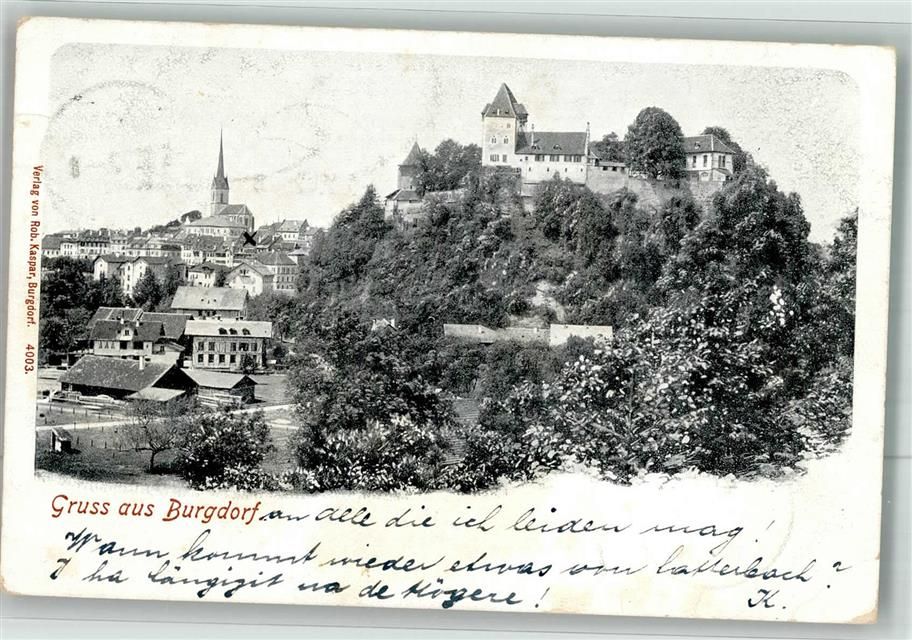 Verlag von Rob. Kaspar, Burgdorf. 4003.
Gruss aus Burgdorf an alle die ich leiden mag!
Wann kommt wieder etwas von Latterbach?
I ha längizit na de Högere!
K.